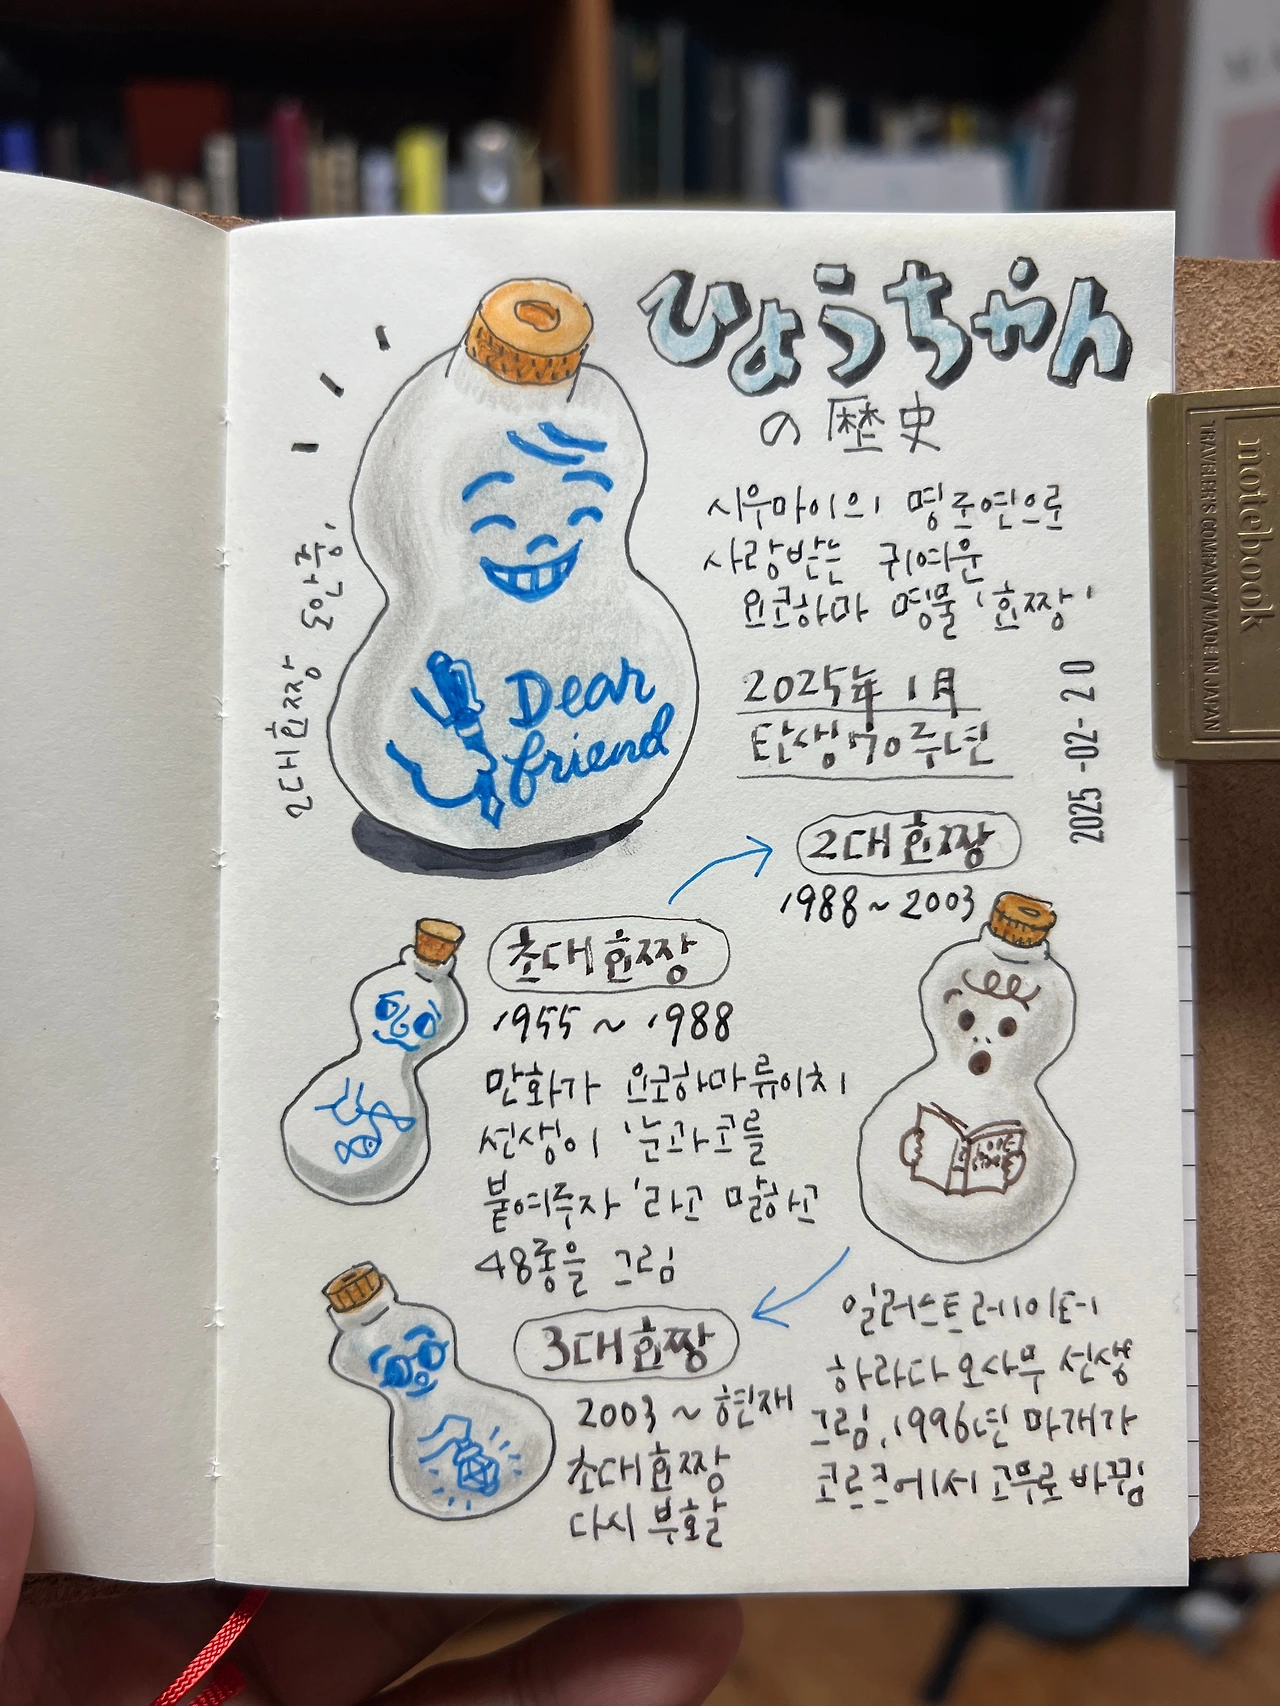 ひょうちゃん
の歴史
시우마이의 명조연으로
사랑받는 귀여운
요코하마 명물 '효짱'
2025年 1月
탄생 70주년
2025-02-20
2대효짱 도안 중,
Dear
friend
2대효짱
1988~2003
초대효짱
1955~1988
만화가 요코하마류이치
선생이 '눈과코를
붙여주자'라고 말하고
48종을 그림
일러스트레이터
하라다 오사무 선생
그림, 1996년 마개가
코르크에서 고무로 바뀜
3대효짱
2003~현재
초대효짱
다시 부활
notebook
TRAVELER'S COMPANY/MADE IN JAPAN